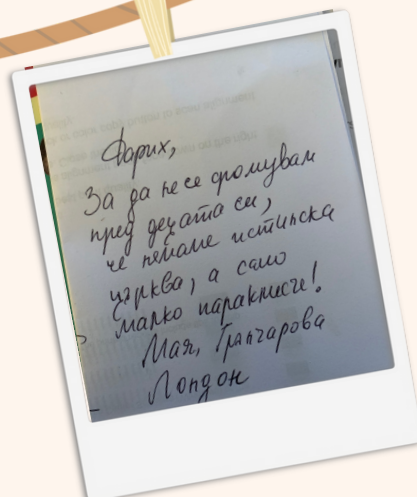 Дарих,
За да не се срамувам
пред децата си,
че нямаме истинска
църква, а само
малко параклисче!
Мая, Грънчарова
Лондон